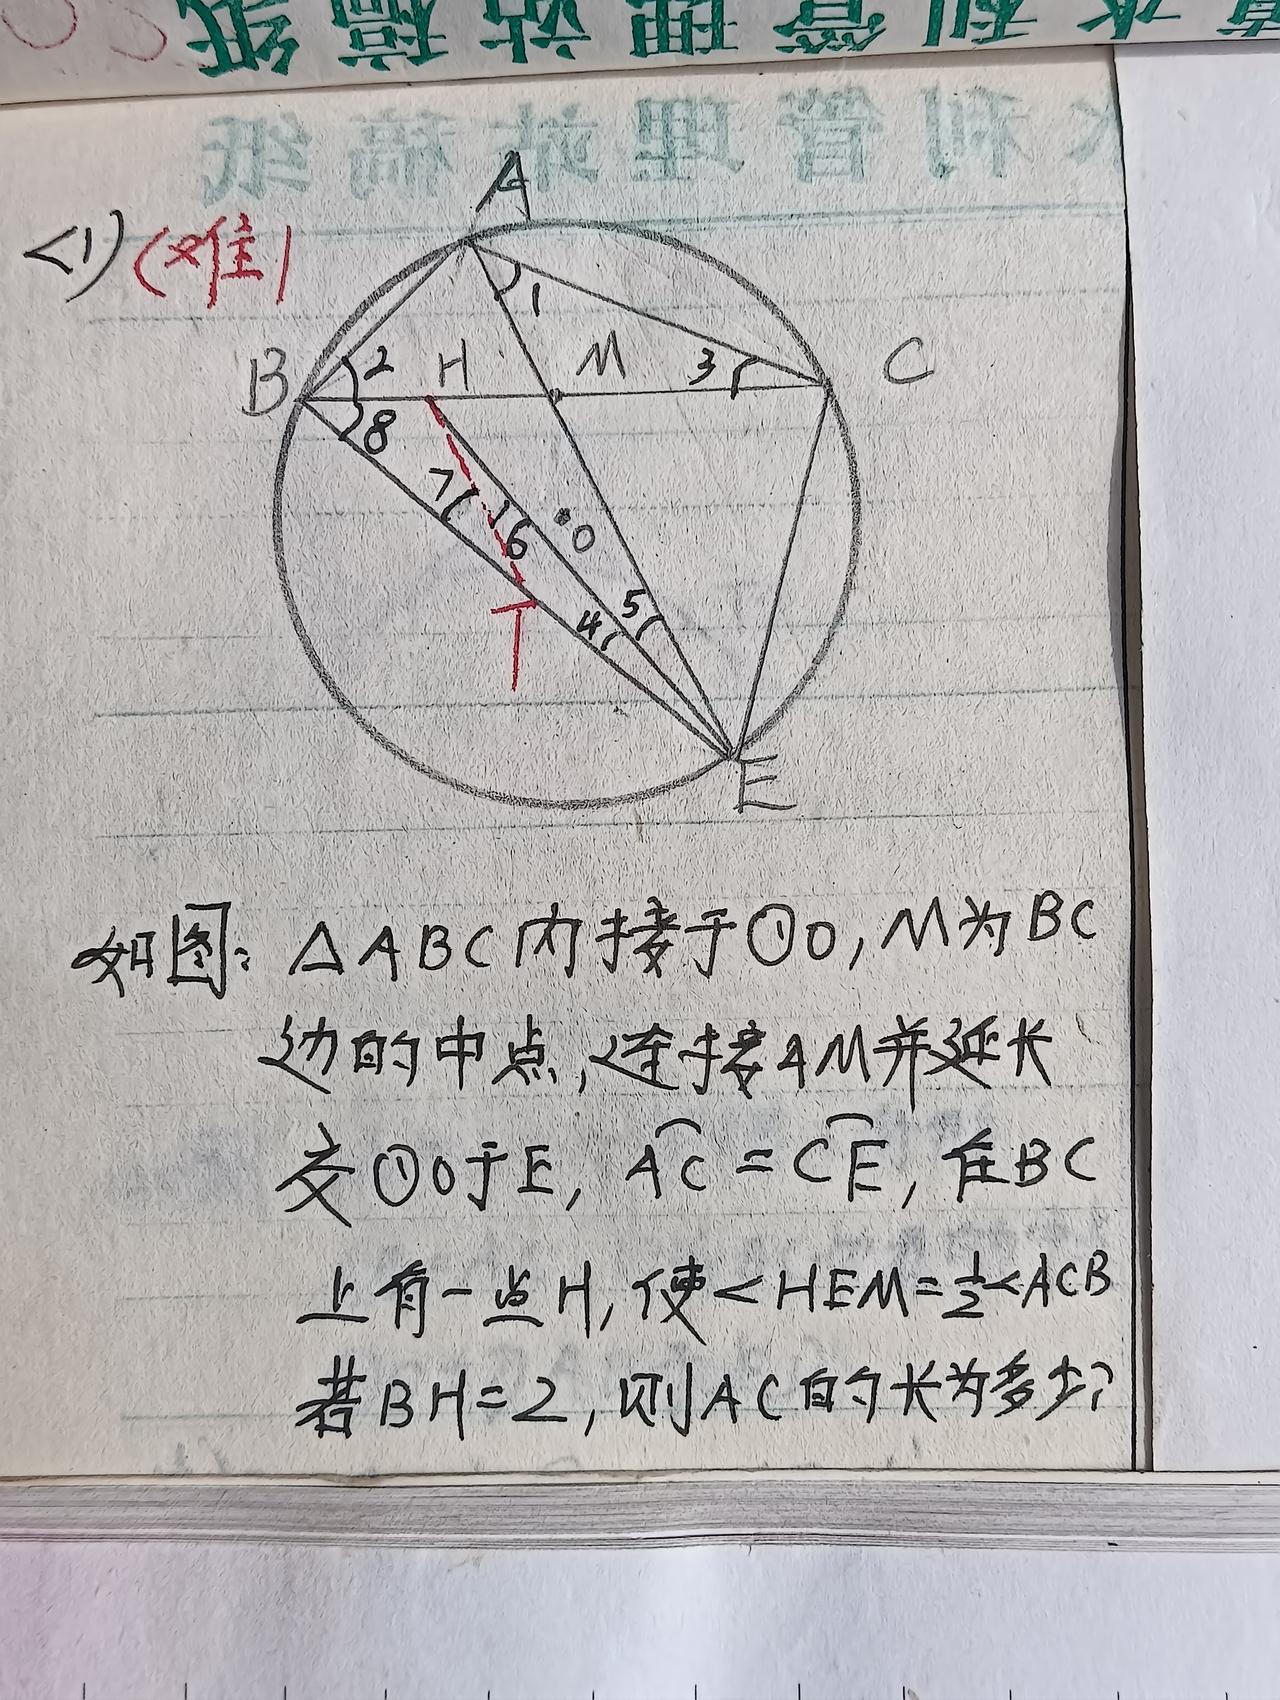 水利管理站稿纸
水利管理站稿纸
<1) (难)
A
1
B 2 H M 3 C
8
7 6 O
T 4 5
E
如图: △ABC内接于⊙O, M为BC
边的中点, 连接AM并延长
交⊙O于E, A͡C = C͡E, 在BC
上有一点H, 使<HEM=½<ACB
若BH=2, 则AC的长为多少?